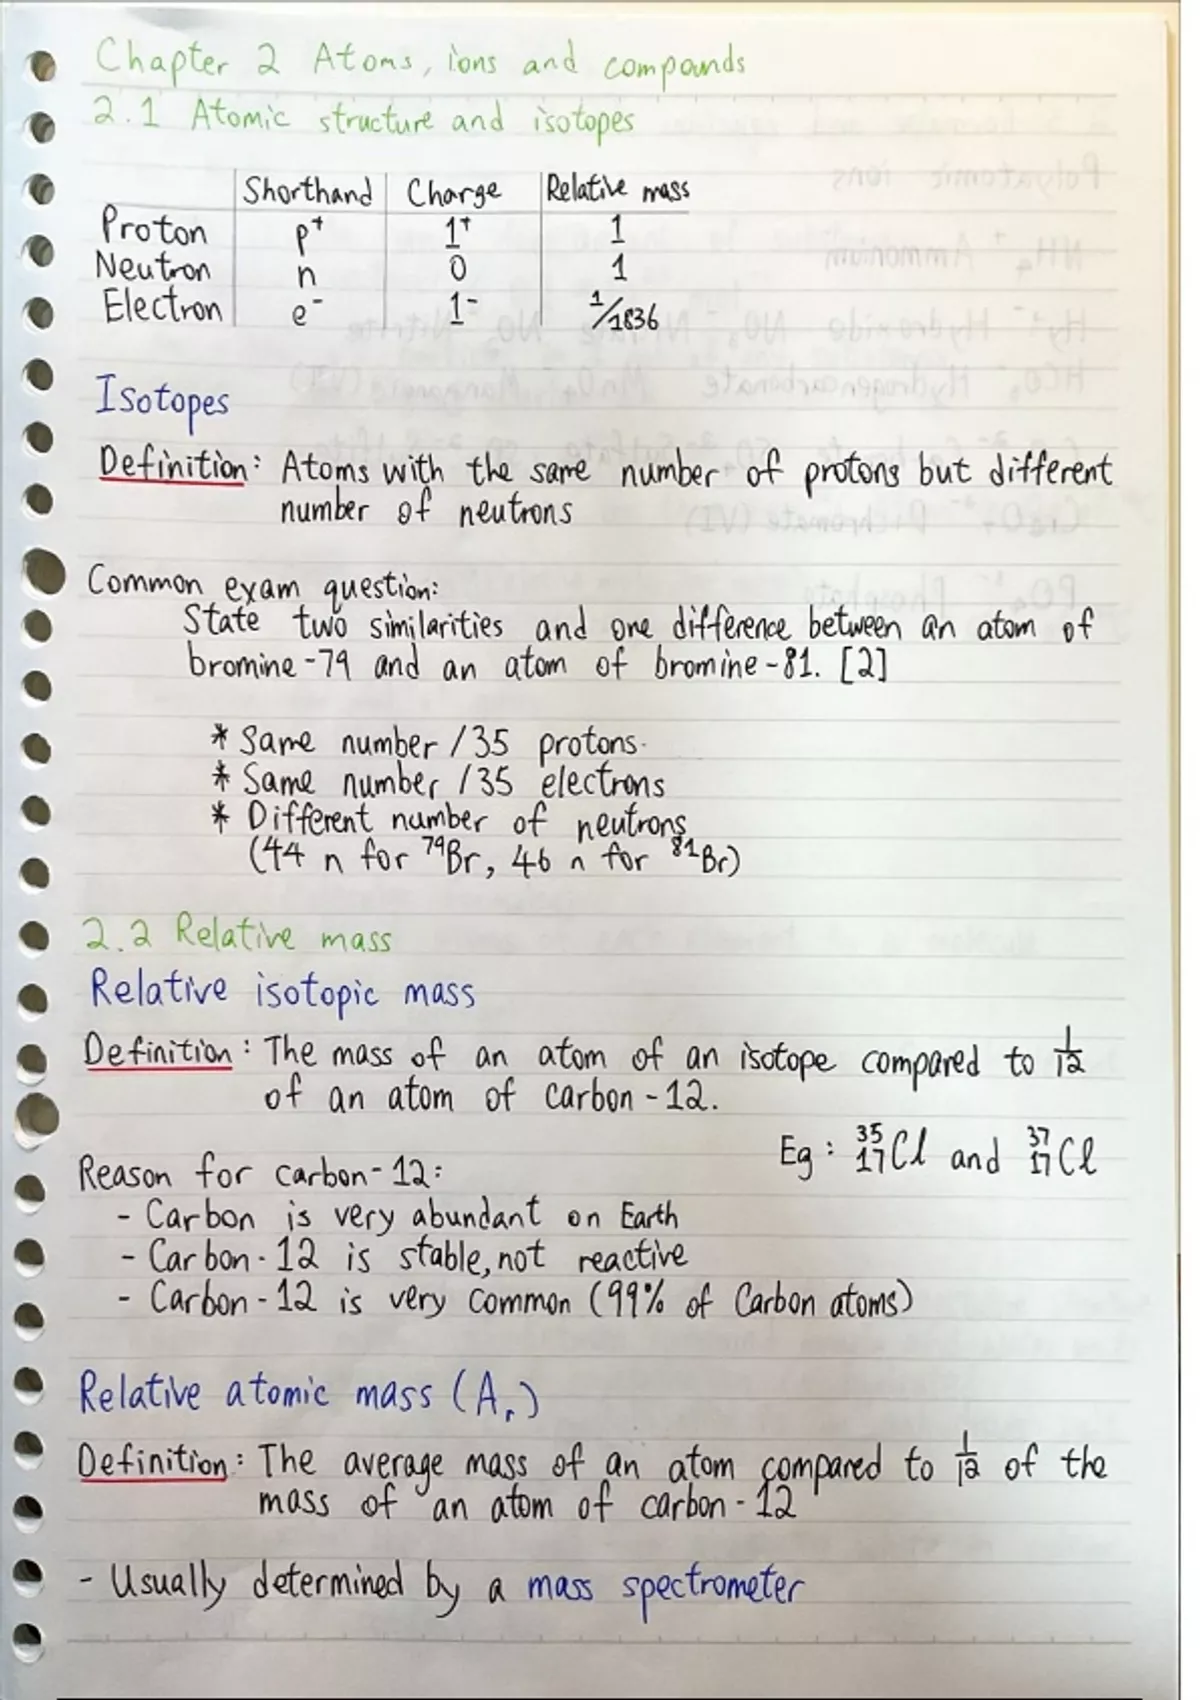 Chapter 2 Atoms, ions and compounds
2.1 Atomic structure and isotopes
Shorthand Charge Relative mass
Proton p⁺ 1⁺ 1
Neutron n 0 1
Electron e⁻ 1⁻ 1/1836
Isotopes
Definition: Atoms with the same number of protons but different
number of neutrons
Common exam question:
State two similarities and one difference between an atom of
bromine-79 and an atom of bromine-81. [2]
* Same number / 35 protons.
* Same number / 35 electrons
* Different number of neutrons
(44 n for ⁷⁹Br, 46 n for ⁸¹Br)
2.2 Relative mass
Relative isotopic mass
Definition: The mass of an atom of an isotope compared to 1/12
of an atom of carbon-12.
Eg: ³⁵₁₇Cl and ³⁷₁₇Cl
Reason for carbon-12:
- Carbon is very abundant on Earth
- Carbon-12 is stable, not reactive
- Carbon-12 is very common (99% of Carbon atoms)
Relative atomic mass (Aᵣ)
Definition: The average mass of an atom compared to 1/12 of the
mass of an atom of carbon-12
- Usually determined by a mass spectrometer